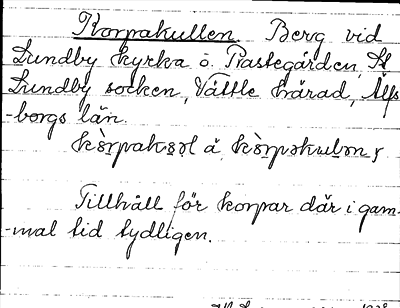 Korpakullen. Berg vid
Lundby kyrka o. Prästegården, St
Lundby socken, Vättle härad, Älfs
-borgs län.
kòrpakǫl å kòrpəkulən,
Tillhåll för korpar där i gam-
-mal tid tydligen.